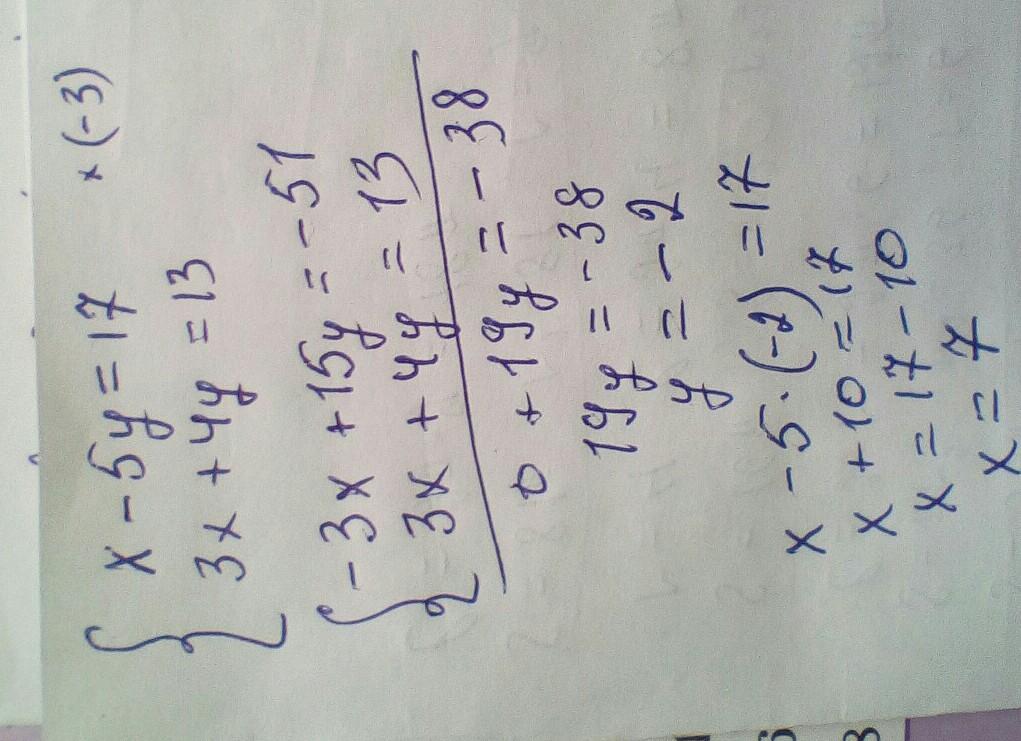 x - 5y = 17 × (-3)
3x + 4y = 13
-3x + 15y = -51
3x + 4y = 13
0 + 19y = -38
19y = -38
y = -2
x - 5 · (-2) = 17
x + 10 = 17
x = 17 - 10
x = 7